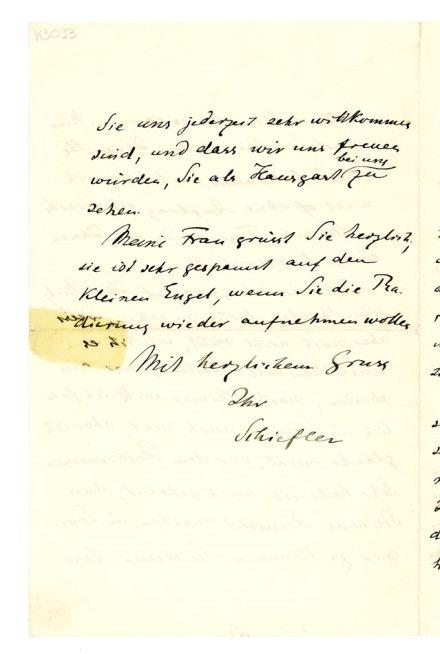 K3033
Sie uns jederzeit sehr willkommen
sind, und dass wir uns freuen
bei uns
würden, Sie als Hausgast zu
sehen.
Meine Frau grüsst Sie herzlich;
sie ist sehr gespannt auf den
kleinen Engel, wenn Sie die Ra-
dierung wieder aufnehmen wollen
Mit herzlichem Gruss
Ihr
Schiefler